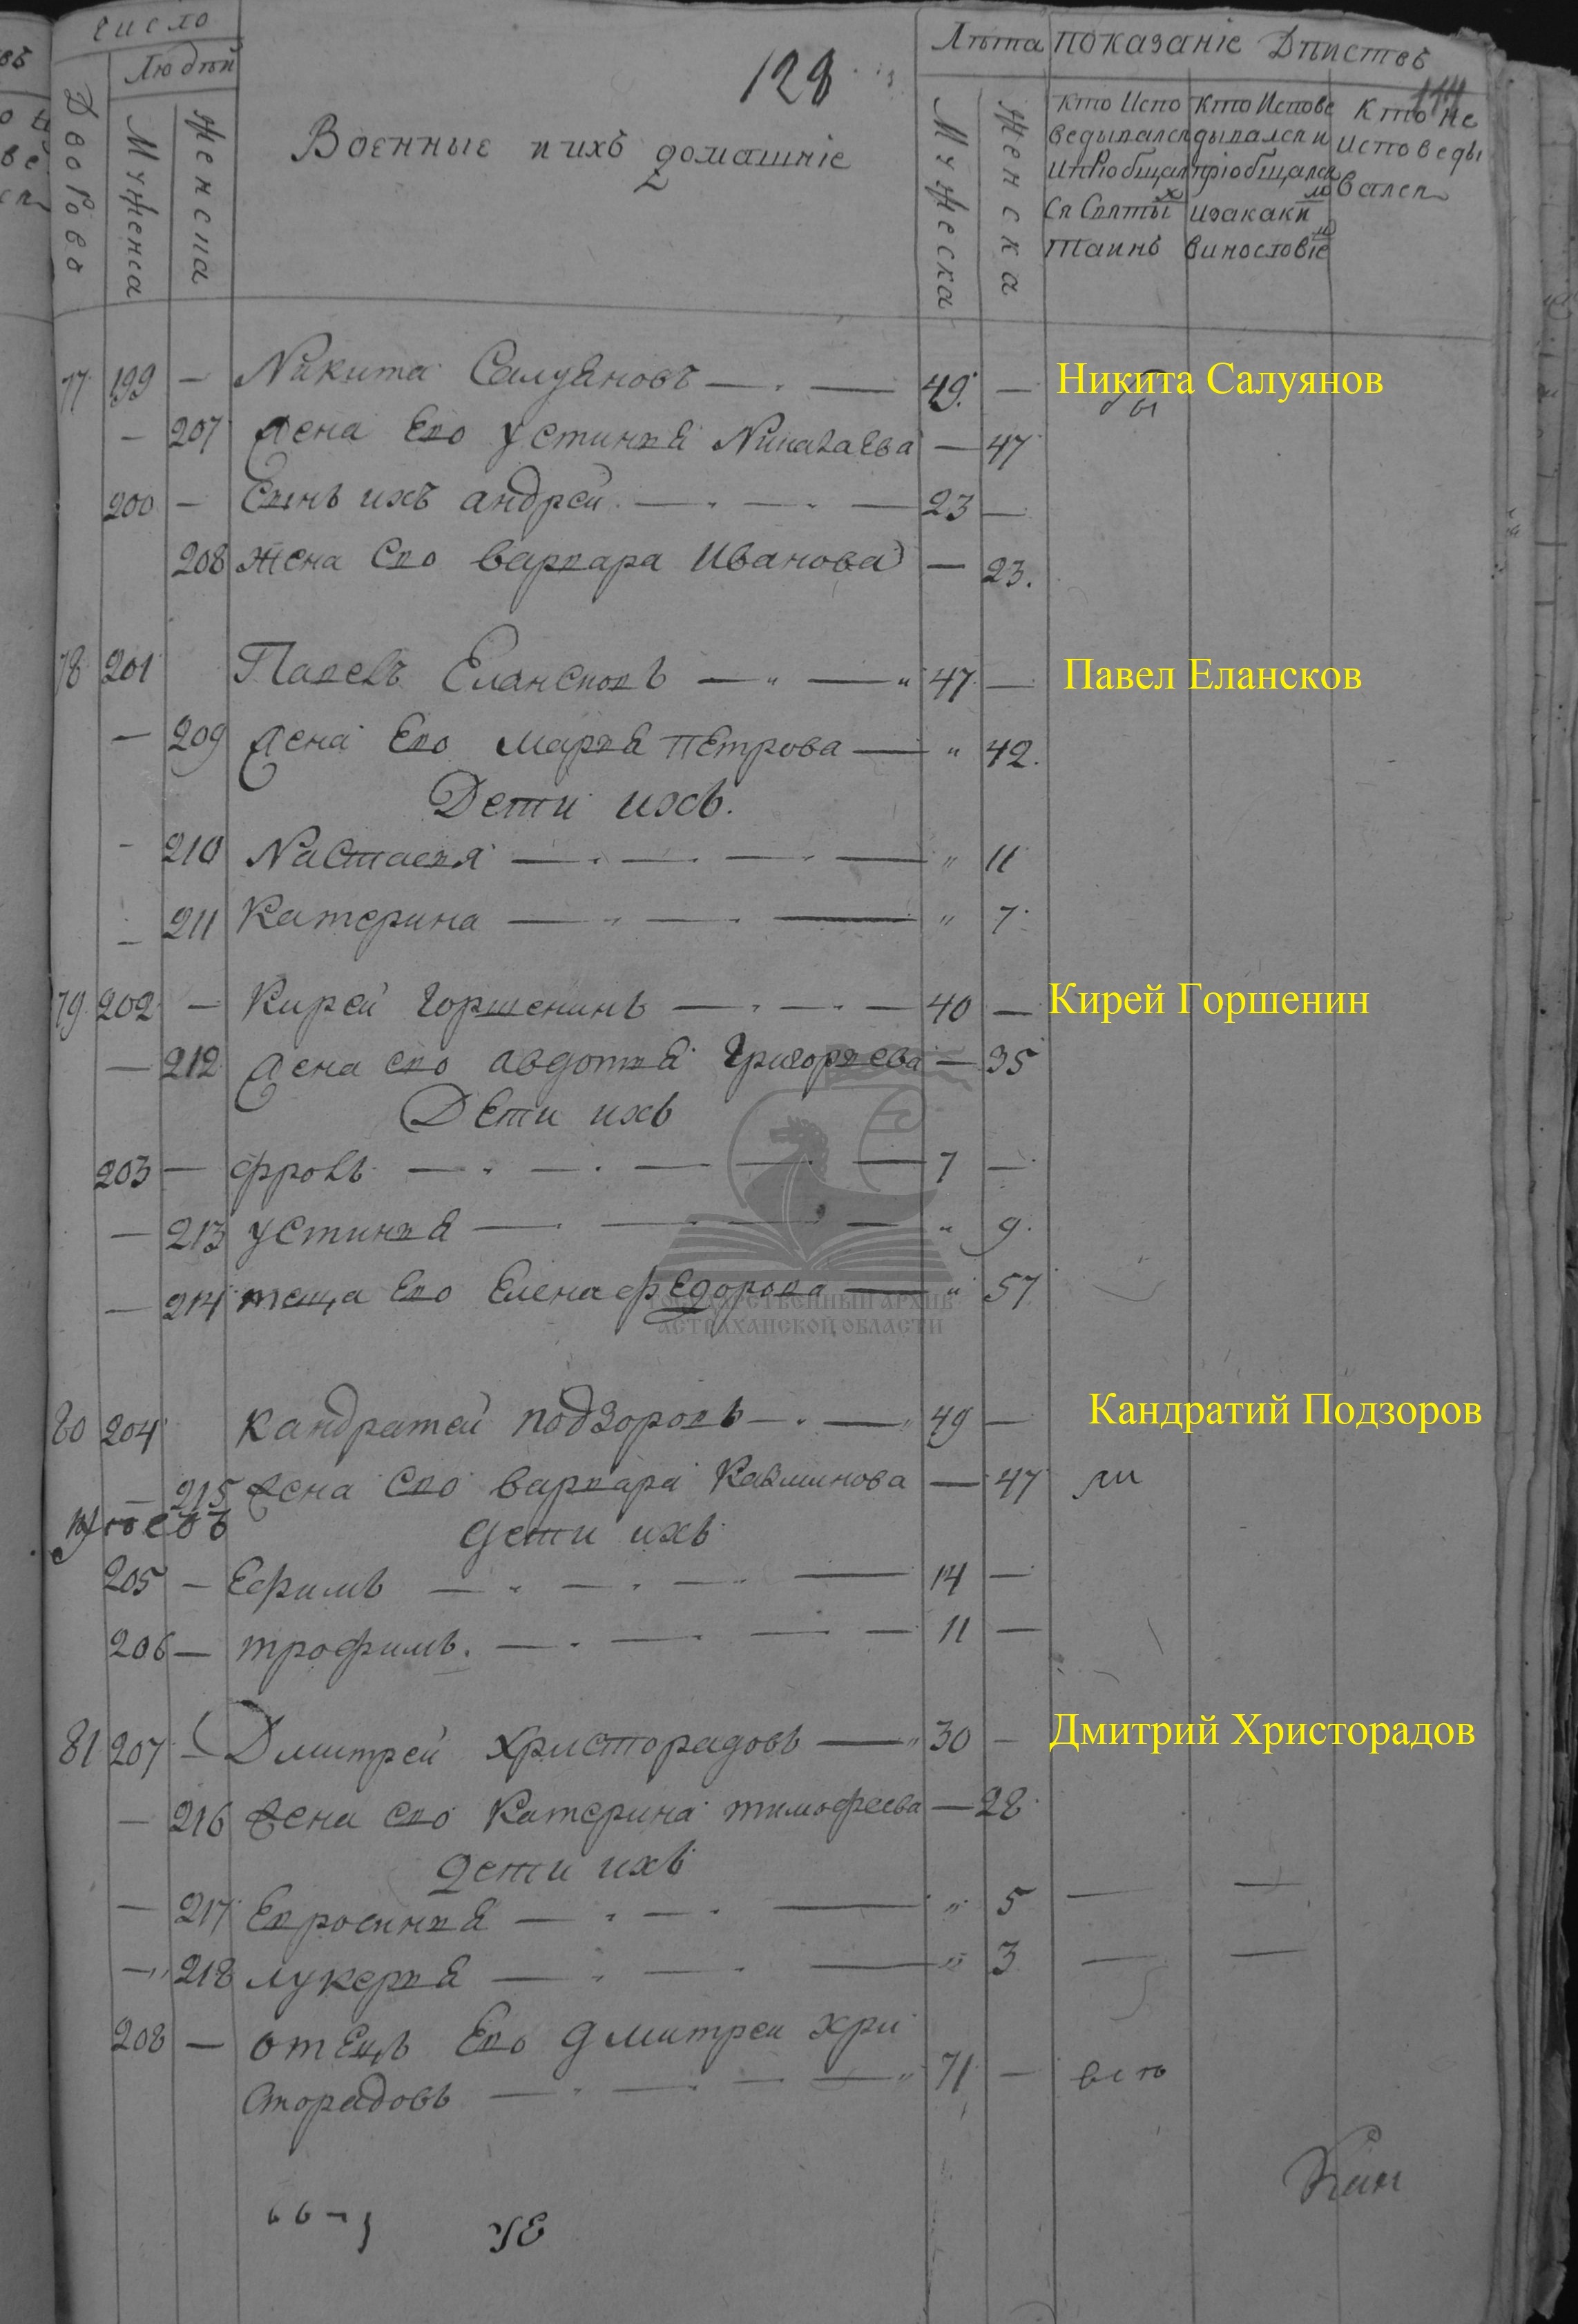 Число
Людѣй
Дворово
Мужеска
Женска
128
114
Военные и ихъ домашніе
Лѣта
Мужеска
Женска
показаніе Дѣйствъ
кто Испо
ведывался
и приобщал
ся Святых
Таинъ
кто Испове
дывался и
не приобщался
и за каким
винословіем
кто не
исповеды
вался
77 199 — Никита Салуяновъ — 49 — Никита Салуянов
— 207 жена Ево Устинья Никалаева — 47
200 — Сынъ ихъ андрей — 23 —
208 жена Ево варвара Иванова — 23.
78 201 Павелъ Елансковъ — 47 — Павел Елансков
— 209 жена Ево Марья пЕтрова — 42.
Дети ихъ.
- 210 Настасья — 11
- 211 Катерина — 7
79 202 — Кирей Горшенинъ — 40 — Кирей Горшенин
— 212 жена ево авдотья Григорьева — 35
ДЕти ихъ
203 — фролъ — 7 —
— 213 устинья — 9.
— 214 теща Ево Елена фЕдорова — 57
ГОСУДАРСТВЕННЫЙ АРХИВ
АСТРАХАНСКОЙ ОБЛАСТИ
80 204 кандратей подзоровъ — 49 — Кандратий Подзоров
— 215 жена Ево варвара Казминова — 47
дети ихъ
205 — Ефимъ — 14 —
206 — трофимъ. — 11 —
81 207 — Дмитрей христорадовъ — 30 — Дмитрий Христорадов
— 216 жена ево Катерина тимофеева — 28
дети ихъ
— 217 Евросинья — 5 — —
— 218 лукерья — 3 — —
208 — отЕцъ Ево дмитреи хри
сторадовъ — 71 —